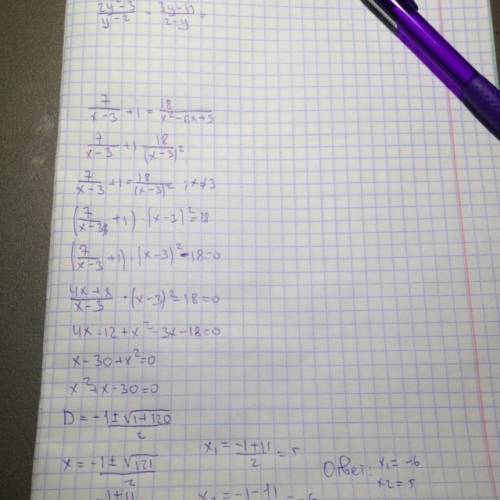 2y-3/y-2 - 3y-11/2-y =
7/x-3 +1 = 18/x²-6x+9
7/x-3 +1 18/(x-3)²
7/x-3 +1 = 18/(x-3)² ; x≠3
(7/x-3 +1) (x-3)² = 18
(7/x-3 +1) · (x-3)² - 18=0
4x+x/x-3 · (x-3)² - 18=0
4x-12+x²-3x-18=0
x-30+x²=0
x²+x-30=0
D = -1±√1+120/2
x = -1±√121/2
x₁ = -1+11/2 = 5
Ответ: x₁ = -6
x2 = 5
-1+11
-1-11